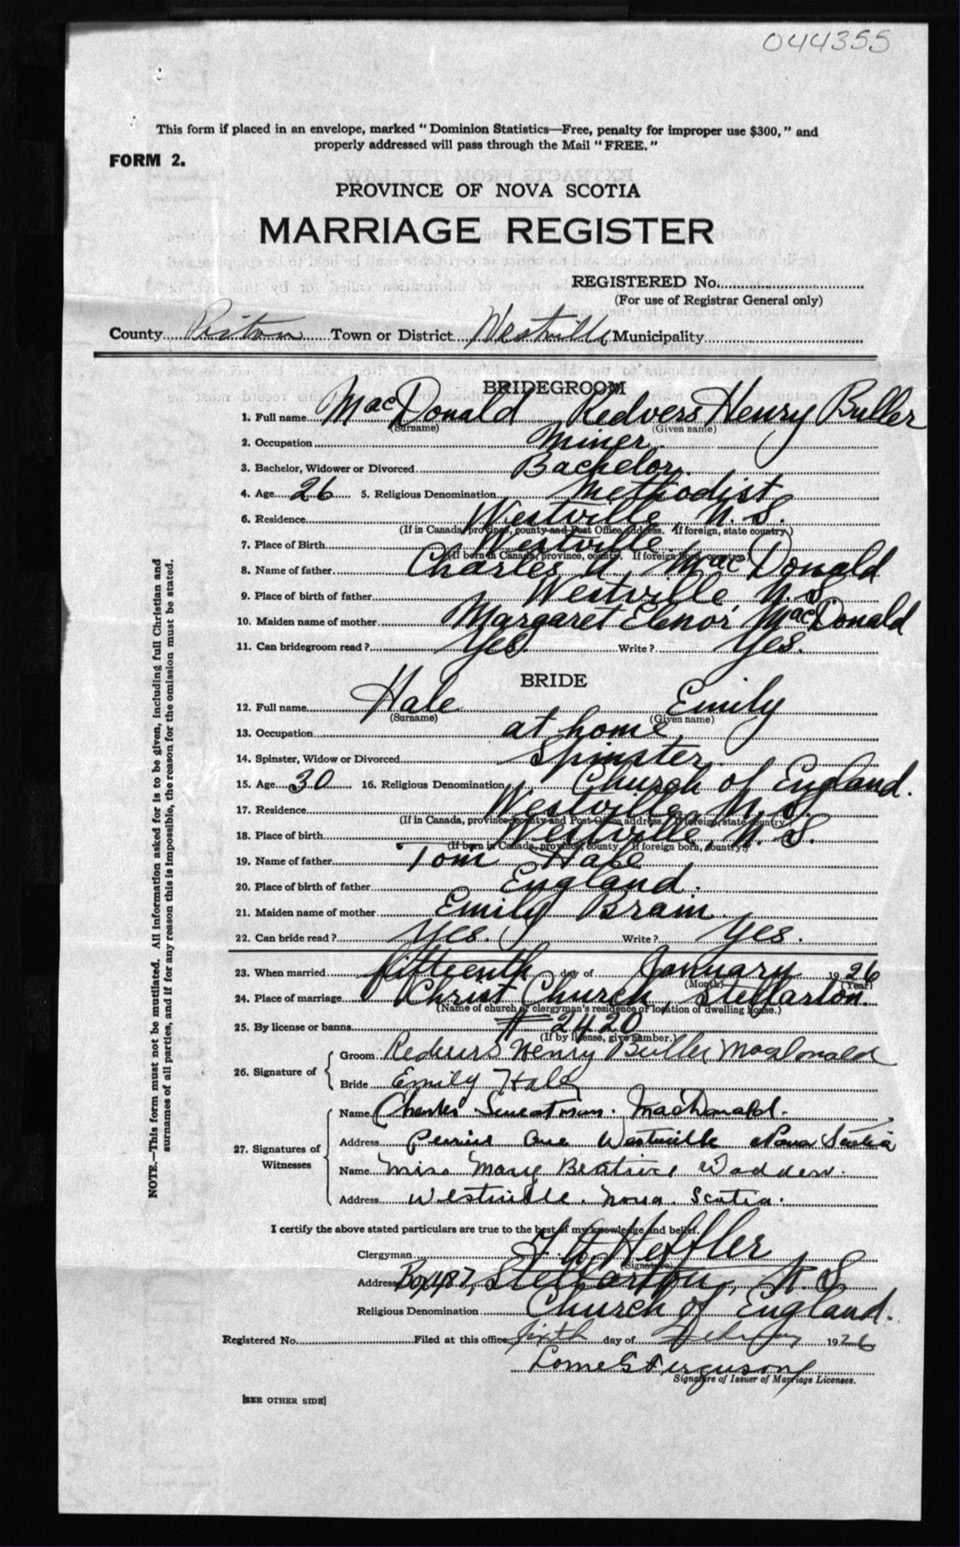 044355
This form if placed in an envelope, marked "Dominion Statistics—Free, penalty for improper use $300," and
properly addressed will pass through the Mail "FREE."
FORM 2.
PROVINCE OF NOVA SCOTIA
MARRIAGE REGISTER
REGISTERED No.
(For use of Registrar General only)
County Pictou Town or District Westville Municipality
BRIDEGROOM
1. Full name MacDonald Redvers Henry Buller
(Surname) (Given name)
2. Occupation Miner
3. Bachelor, Widower or Divorced Bachelor.
4. Age 26 5. Religious Denomination Methodist
6. Residence Westville N.S.
(If in Canada, province, county and Post Office address. If foreign, state country.)
7. Place of Birth Westville
(If born in Canada, province, county. If foreign born, country.)
8. Name of father Charles A MacDonald
9. Place of birth of father Westville N.S.
10. Maiden name of mother Margaret Elenor MacDonald
11. Can bridegroom read? Yes. Write? Yes.
BRIDE
12. Full name Hale Emily
(Surname) (Given name)
13. Occupation at home
14. Spinster, Widow or Divorced Spinster.
15. Age 30 16. Religious Denomination Church of England.
17. Residence Westville N.S.
(If in Canada, province, county and Post Office address. If foreign, state country.)
18. Place of birth Westville N.S.
(If born in Canada, province, county. If foreign born, country.)
19. Name of father Tom Hale
20. Place of birth of father England.
21. Maiden name of mother Emily Brain
22. Can bride read? Yes. Write? Yes.
23. When married fifteenth day of January 1926
(Month) (Year)
24. Place of marriage Christ Church, Stellarton
(Name of church or clergyman's residence or location of dwelling house.)
25. By license or banns # 2420
(If by license, give number.)
26. Signature of Groom Redvers Henry Buller MacDonald
Bride Emily Hale
27. Signatures of Witnesses
Name Charles MacDonald.
Address Ave Westville Nova Scotia
Name Miss Mary Beatrice Wadden.
Address Westville. Nova Scotia.
I certify the above stated particulars are true to the best of my knowledge and belief.
Clergyman Heffler
(Signature)
Address Box 487, Stellarton, N.S
Religious Denomination Church of England.
Registered No. Filed at this office sixth day of February 1926
Lorne G Ferguson
Signature of Issuer of Marriage Licenses.
[SEE OTHER SIDE]
NOTE.—This form must not be mutilated. All information asked for is to be given, including full Christian and
surnames of all parties, and if for any reason this is impossible, the reason for the omission must be stated.